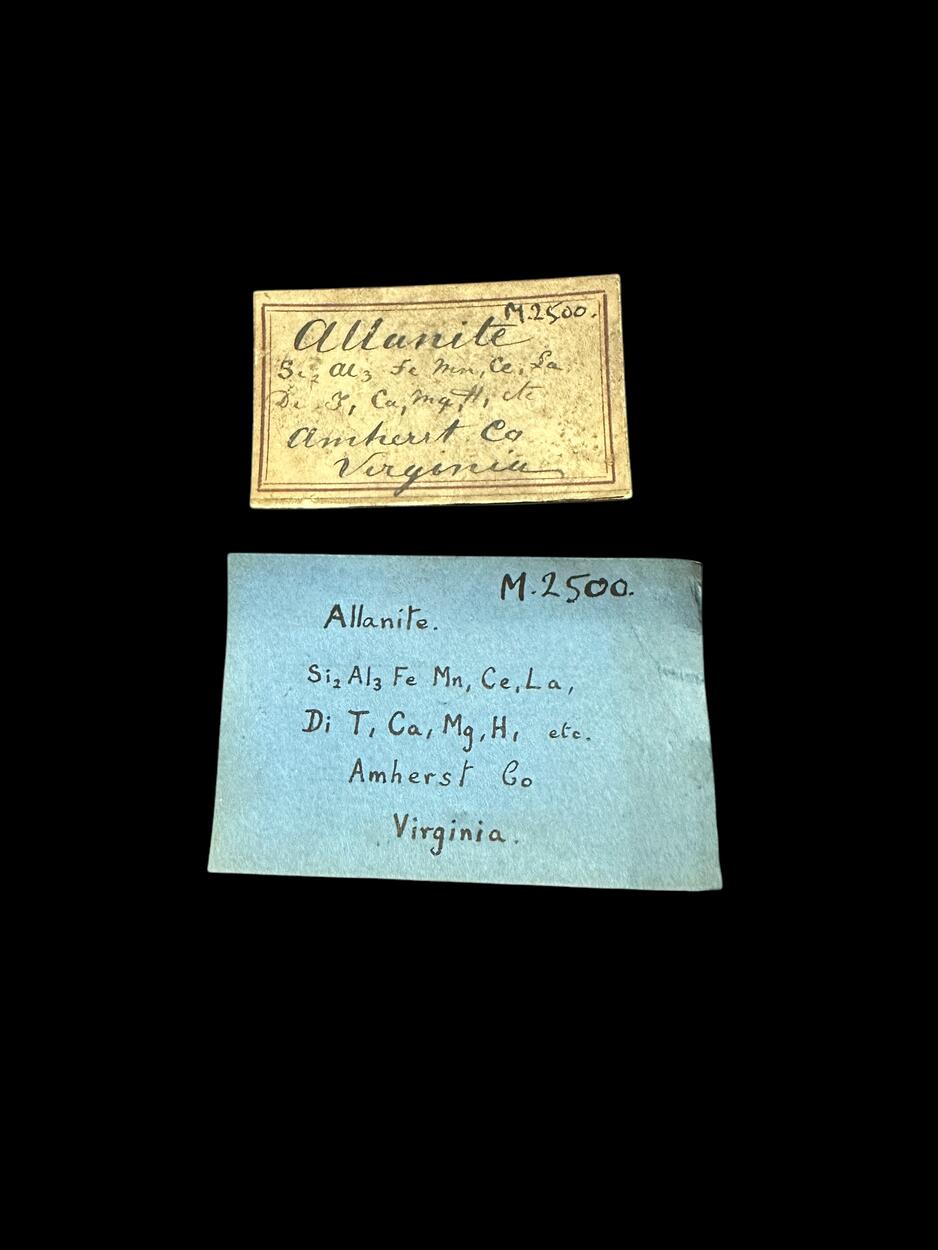 M.2500.
Allanite
Si₂ Al₃ Fe Mn, Ce, La,
Di I, Ca, Mg, H, etc
Amherst Co
Virginia
M.2500.
Allanite.
Si₂ Al₃ Fe Mn, Ce, La,
Di T, Ca, Mg, H, etc.
Amherst Co
Virginia.